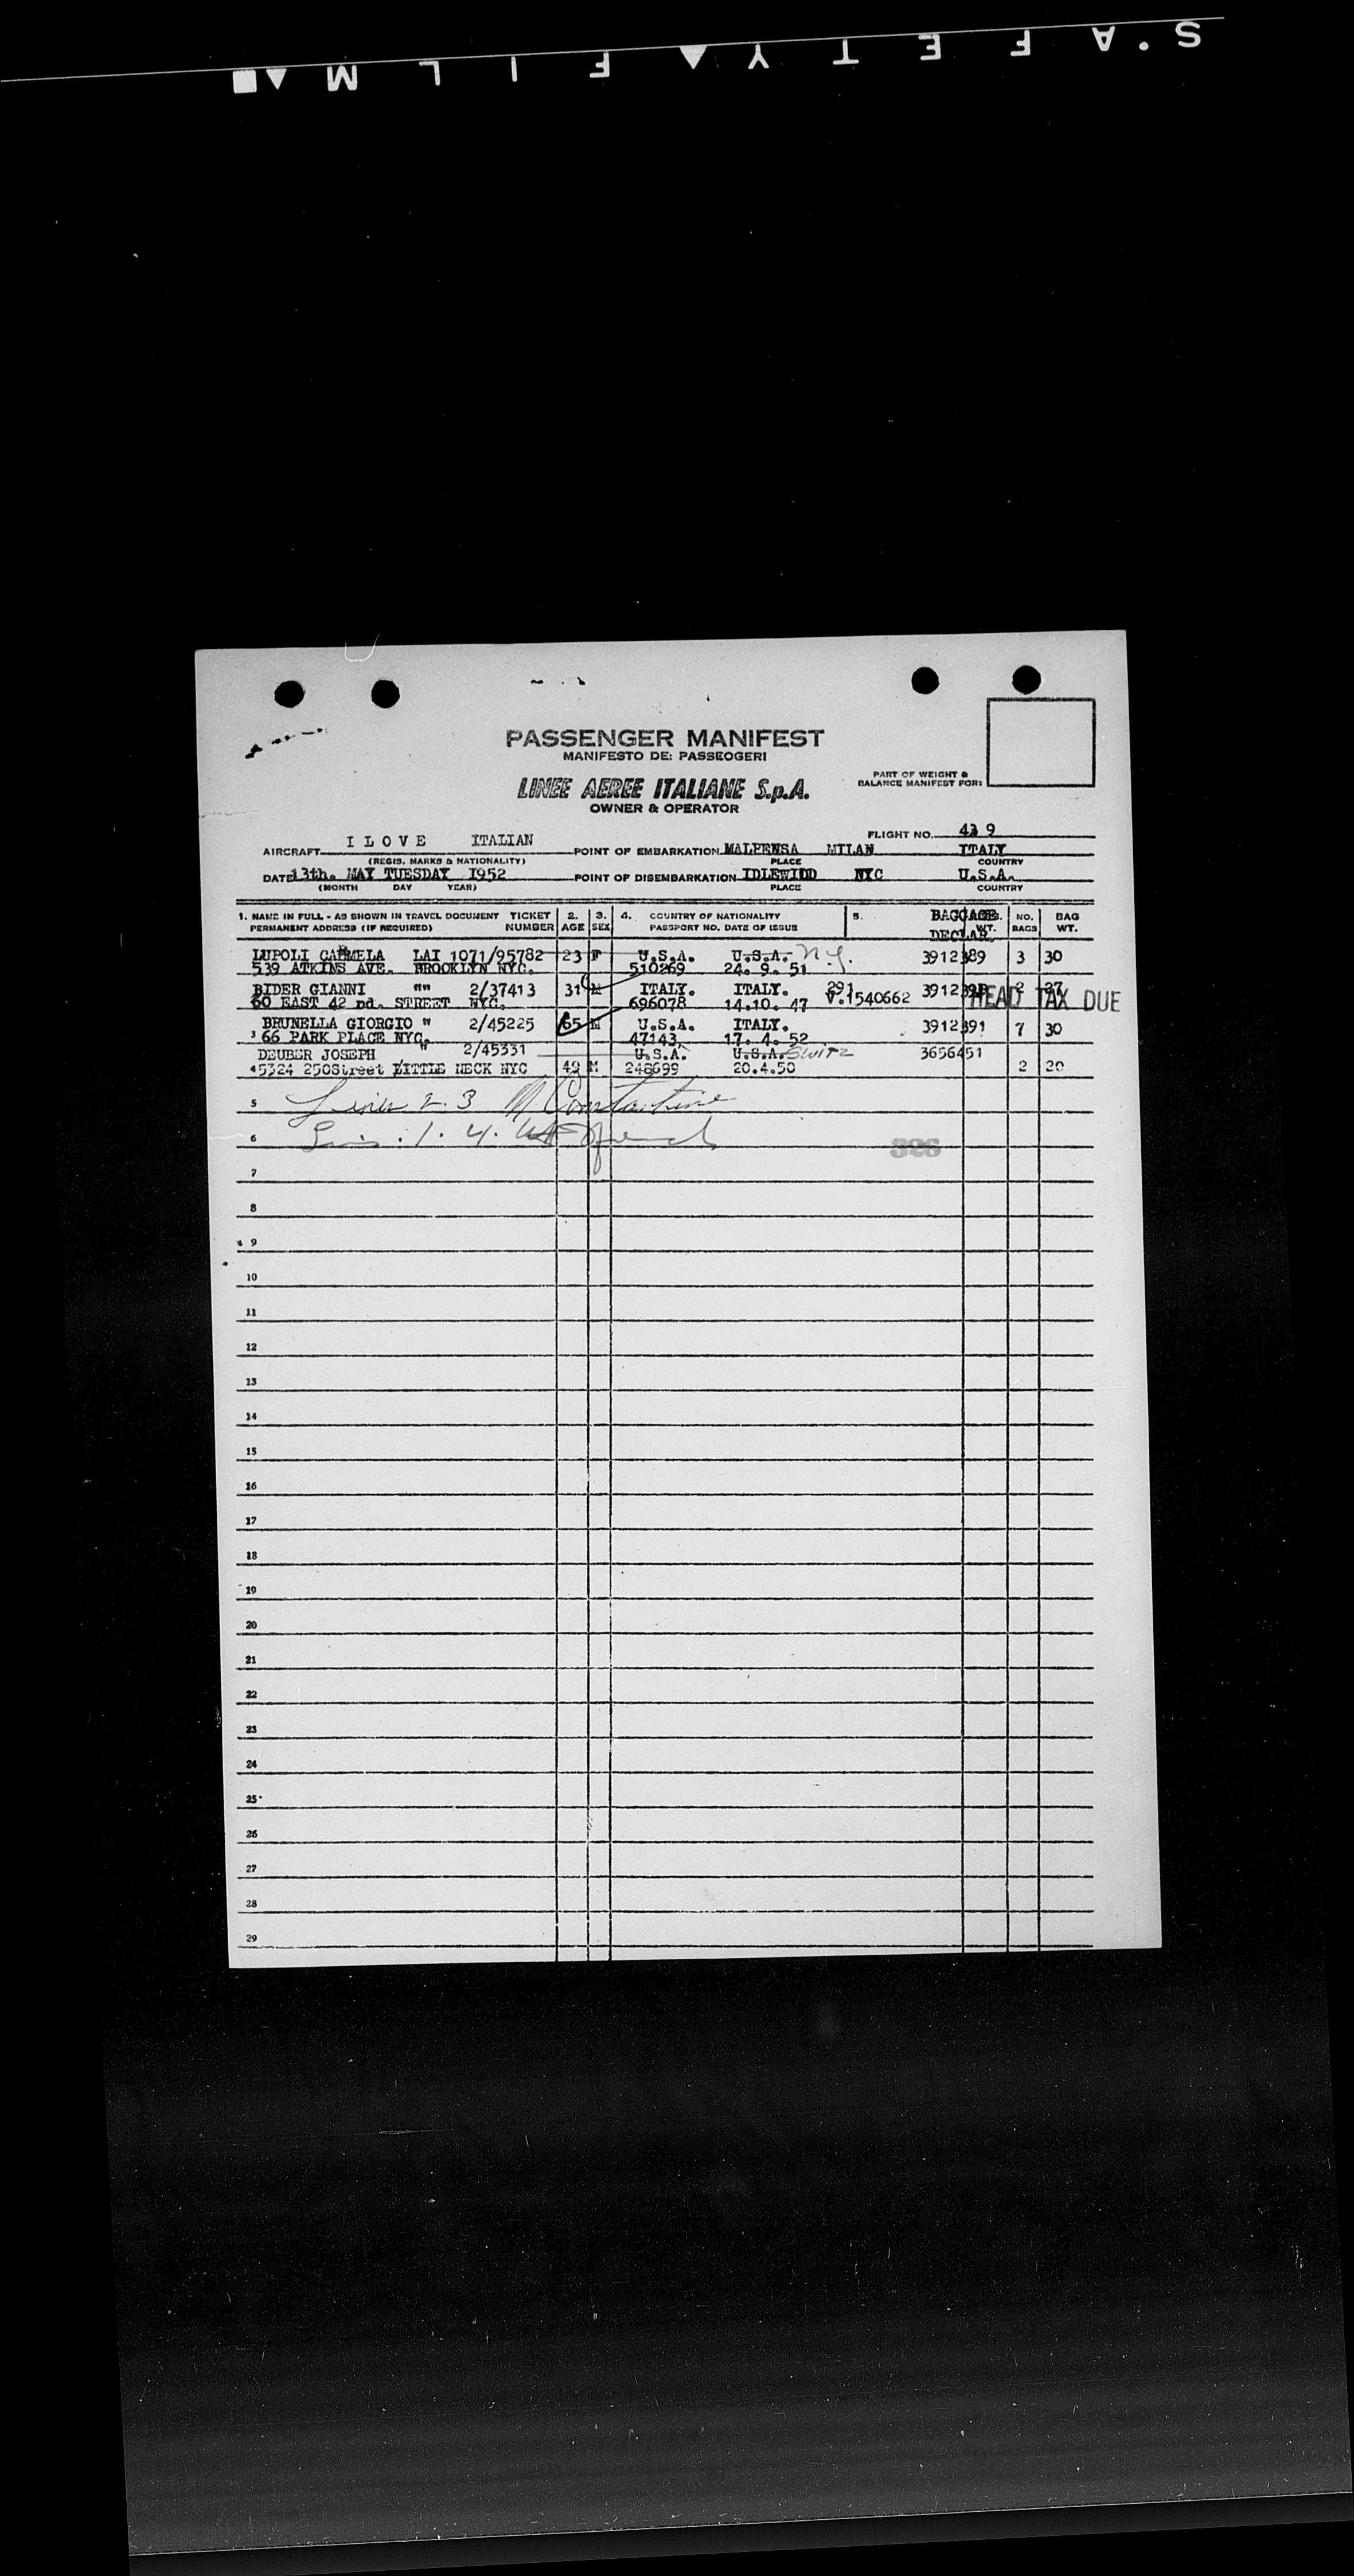 S.AFETY▲FILM▲■
PASSENGER MANIFEST
MANIFESTO DE: PASSEOGERI
LINEE AEREE ITALIANE S.p.A.
OWNER & OPERATOR
PART OF WEIGHT &
BALANCE MANIFEST FOR:
FLIGHT NO. 9
AIRCRAFT I L O V E ITALIAN POINT OF EMBARKATION MALPENSA MILAN ITALY
(REGIS. MARKS & NATIONALITY) PLACE COUNTRY
DATE 13th. MAY TUESDAY 1952 POINT OF DISEMBARKATION IDLEWIDD NYC U.S.A.
(MONTH DAY YEAR) PLACE COUNTRY
1. NAME IN FULL - AS SHOWN IN TRAVEL DOCUMENT TICKET 2. 3. 4. COUNTRY OF NATIONALITY 5. BAGGAGE NO. BAG
PERMANENT ADDRESS (IF REQUIRED) NUMBER AGE SEX PASSPORT NO. DATE OF ISSUE WT. BAGS WT.
DECLAR.
LUPOLI CARMELA LAI 1071/95782 23 F U.S.A. U.S.A. N.Y. 3912389 3 30
539 ATKINS AVE. BROOKLYN NYC. 510269 24. 9. 51
BIDER GIANNI "" 2/37413 31 M ITALY. ITALY. 291 3912390 2 27
60 EAST 42 nd. STREET NYC. 696078 14.10. 47 V.1540662 HEAD TAX DUE
BRUNELLA GIORGIO " 2/45225 65 M U.S.A. ITALY. 3912391 7 30
3 66 PARK PLACE NYC. 47143 17. 4. 52
DEUBER JOSEPH " 2/45331 U.S.A. U.S.A. Switz 3656451
4 5324 250Street LITTLE NECK NYC 49 M 248699 20.4.50 2 20
5 Lines 2. 3 M Constantine
6 Lines . 1. 4.
326
7
8
9
10
11
12
13
14
15
16
17
18
19
20
21
22
23
24
25
26
27
28
29